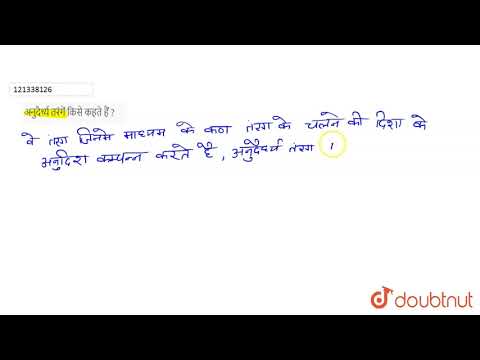 121338126
अनुदैर्ध्य तरंगें किसे कहते हैं ?
वे तरंग जिनमे माध्यम के कण तरंग के चलने की दिशा के
अनुदिश कम्पन्न करते है , अनुदैर्ध्य तरंग ।
doubtnut